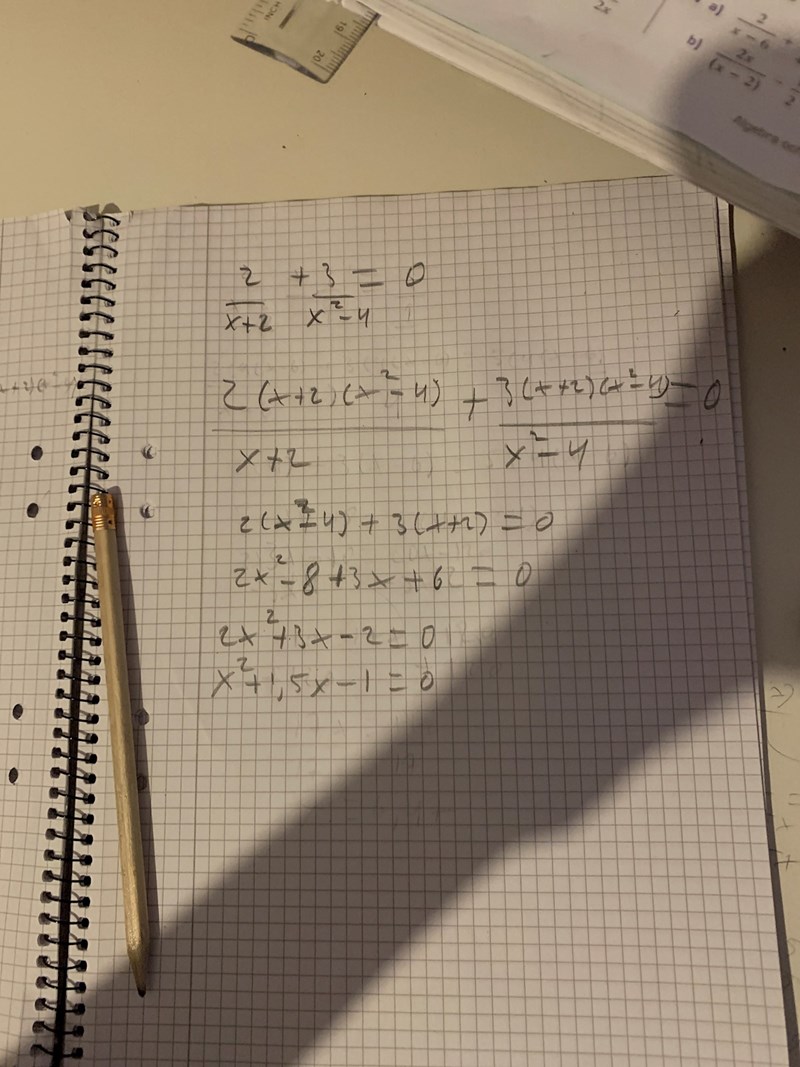 INCH
19
20
2x
a) 2/(x-6) +
b) 2x/(x-2) -
2
Algebra
2/(x+2) + 3/(x²-4) = 0
2(x+2)(x²-4)/(x+2) + 3(x+2)(x²-4)/(x²-4) = 0
2(x²-4) + 3(x+2) = 0
2x²-8+3x+6 = 0
2x²+3x-2=0
x²+1,5x-1=0